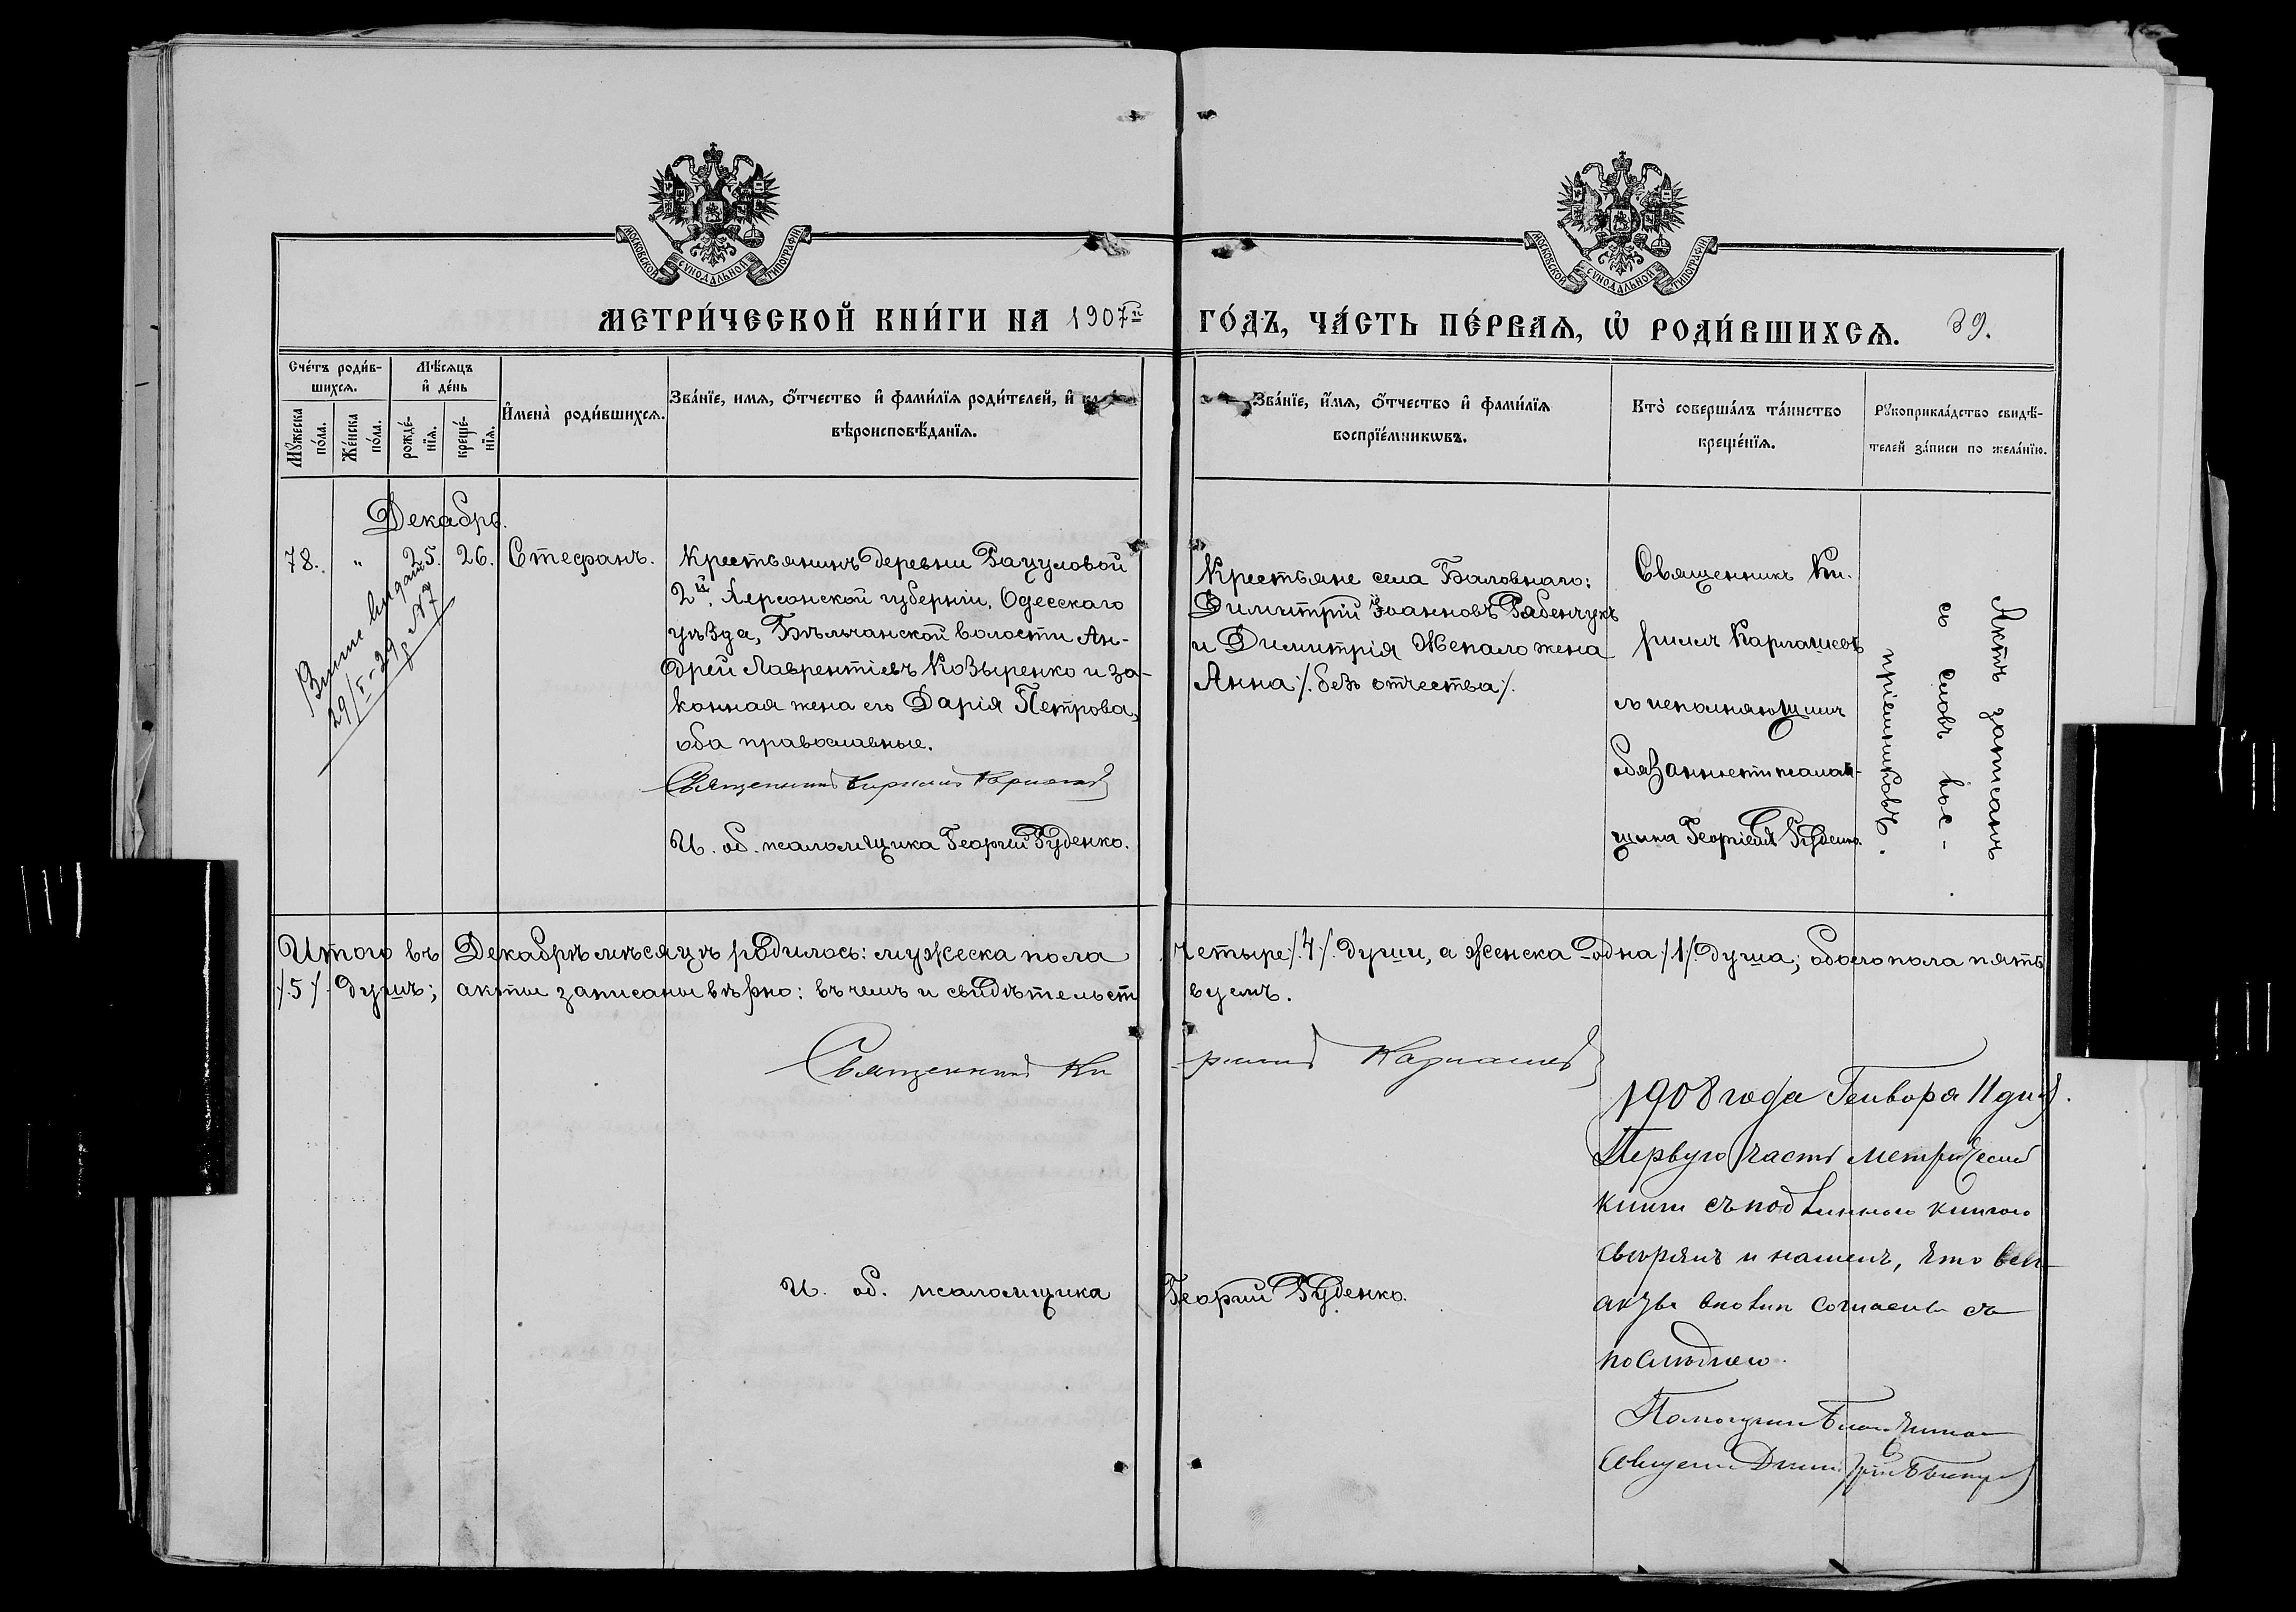 МОСКОВСКОЙ СѴНОДАЛЬНОЙ ТИПОГРАФІИ
МОСКОВСКОЙ СѴНОДАЛЬНОЙ ТИПОГРАФІИ
МЕТРИ́ЧЕСКОЙ КНИ́ГИ НА 1907й ГО́ДЪ, ЧА́СТЬ ПЕ́РВАЯ, Ѡ РОДИ́ВШИХСЯ. 39.
Сче́тъ роди́в-
шихся.
Мѣ́сяцъ
и҆ де́нь
Мꙋжеска
по́ла.
Же́нска
по́ла.
рожде́-
нїя.
креще́-
нїя.
И҆мена̀ роди́вшихся.
Зва́нїе, имя, ѻ҆́тчество и҆ фами́лїя роди́телей, и҆
вѣроисповѣ́данїя.
Зва́нїе, и҆́мя, ѻ҆́тчество и҆ фами́лїя
воспрїе́мникωвъ.
Кто̀ соверша́лъ та́инство
креще́нїя.
Рꙋкоприкла́дство свидѣ́-
телей за́писи по жела́нїю.
Декабрь.
78. " 25. 26. Стефанъ.
29/I-29 г №7
Крестьянинъ деревни Рацуловой
2й, Херсонской губерніи, Одесскаго
уѣзда, Бѣльчанской волости Ан-
дрей Лаврентіевъ Козыренко и за-
конная жена его Дарія Петрова,
оба православные.
Священникъ Кириллъ
И. об. псаломщика Георгій Руденко.
Крестьяне села Баловнаго:
Димитрій Іоанновъ Рябенчукъ
и Димитрія Жепало жена
Анна /. безъ отчества /.
Священникъ Ки-
риллъ Карташевъ
съ исполняющимъ
обязанности псалом-
щика Георгіемъ Руденко.
Актъ записанъ
съ словъ вос-
пріемниковъ.
Итого въ Декабрѣ мѣсяцѣ родилось: мужеска пола четыре /.4/. души, а женска одна /1/. душа; обоего пола пять
/.5/. душъ; акты записаны вѣрно: въ чемъ и свидѣтельствуемъ.
Священникъ Кириллъ Карташевъ
И. об. псаломщика Георгій Руденко.
1908 года Генвара 11 дня.
Первую часть метрической
книги съ подлинною книгою
свѣрялъ и нашелъ, что всѣ
акты вполнѣ согласны съ
послѣднею.